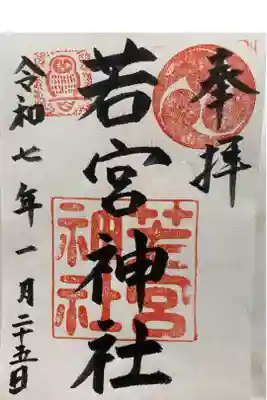 奉拝
若宮神社
若宮神社
令和七年一月二十五日